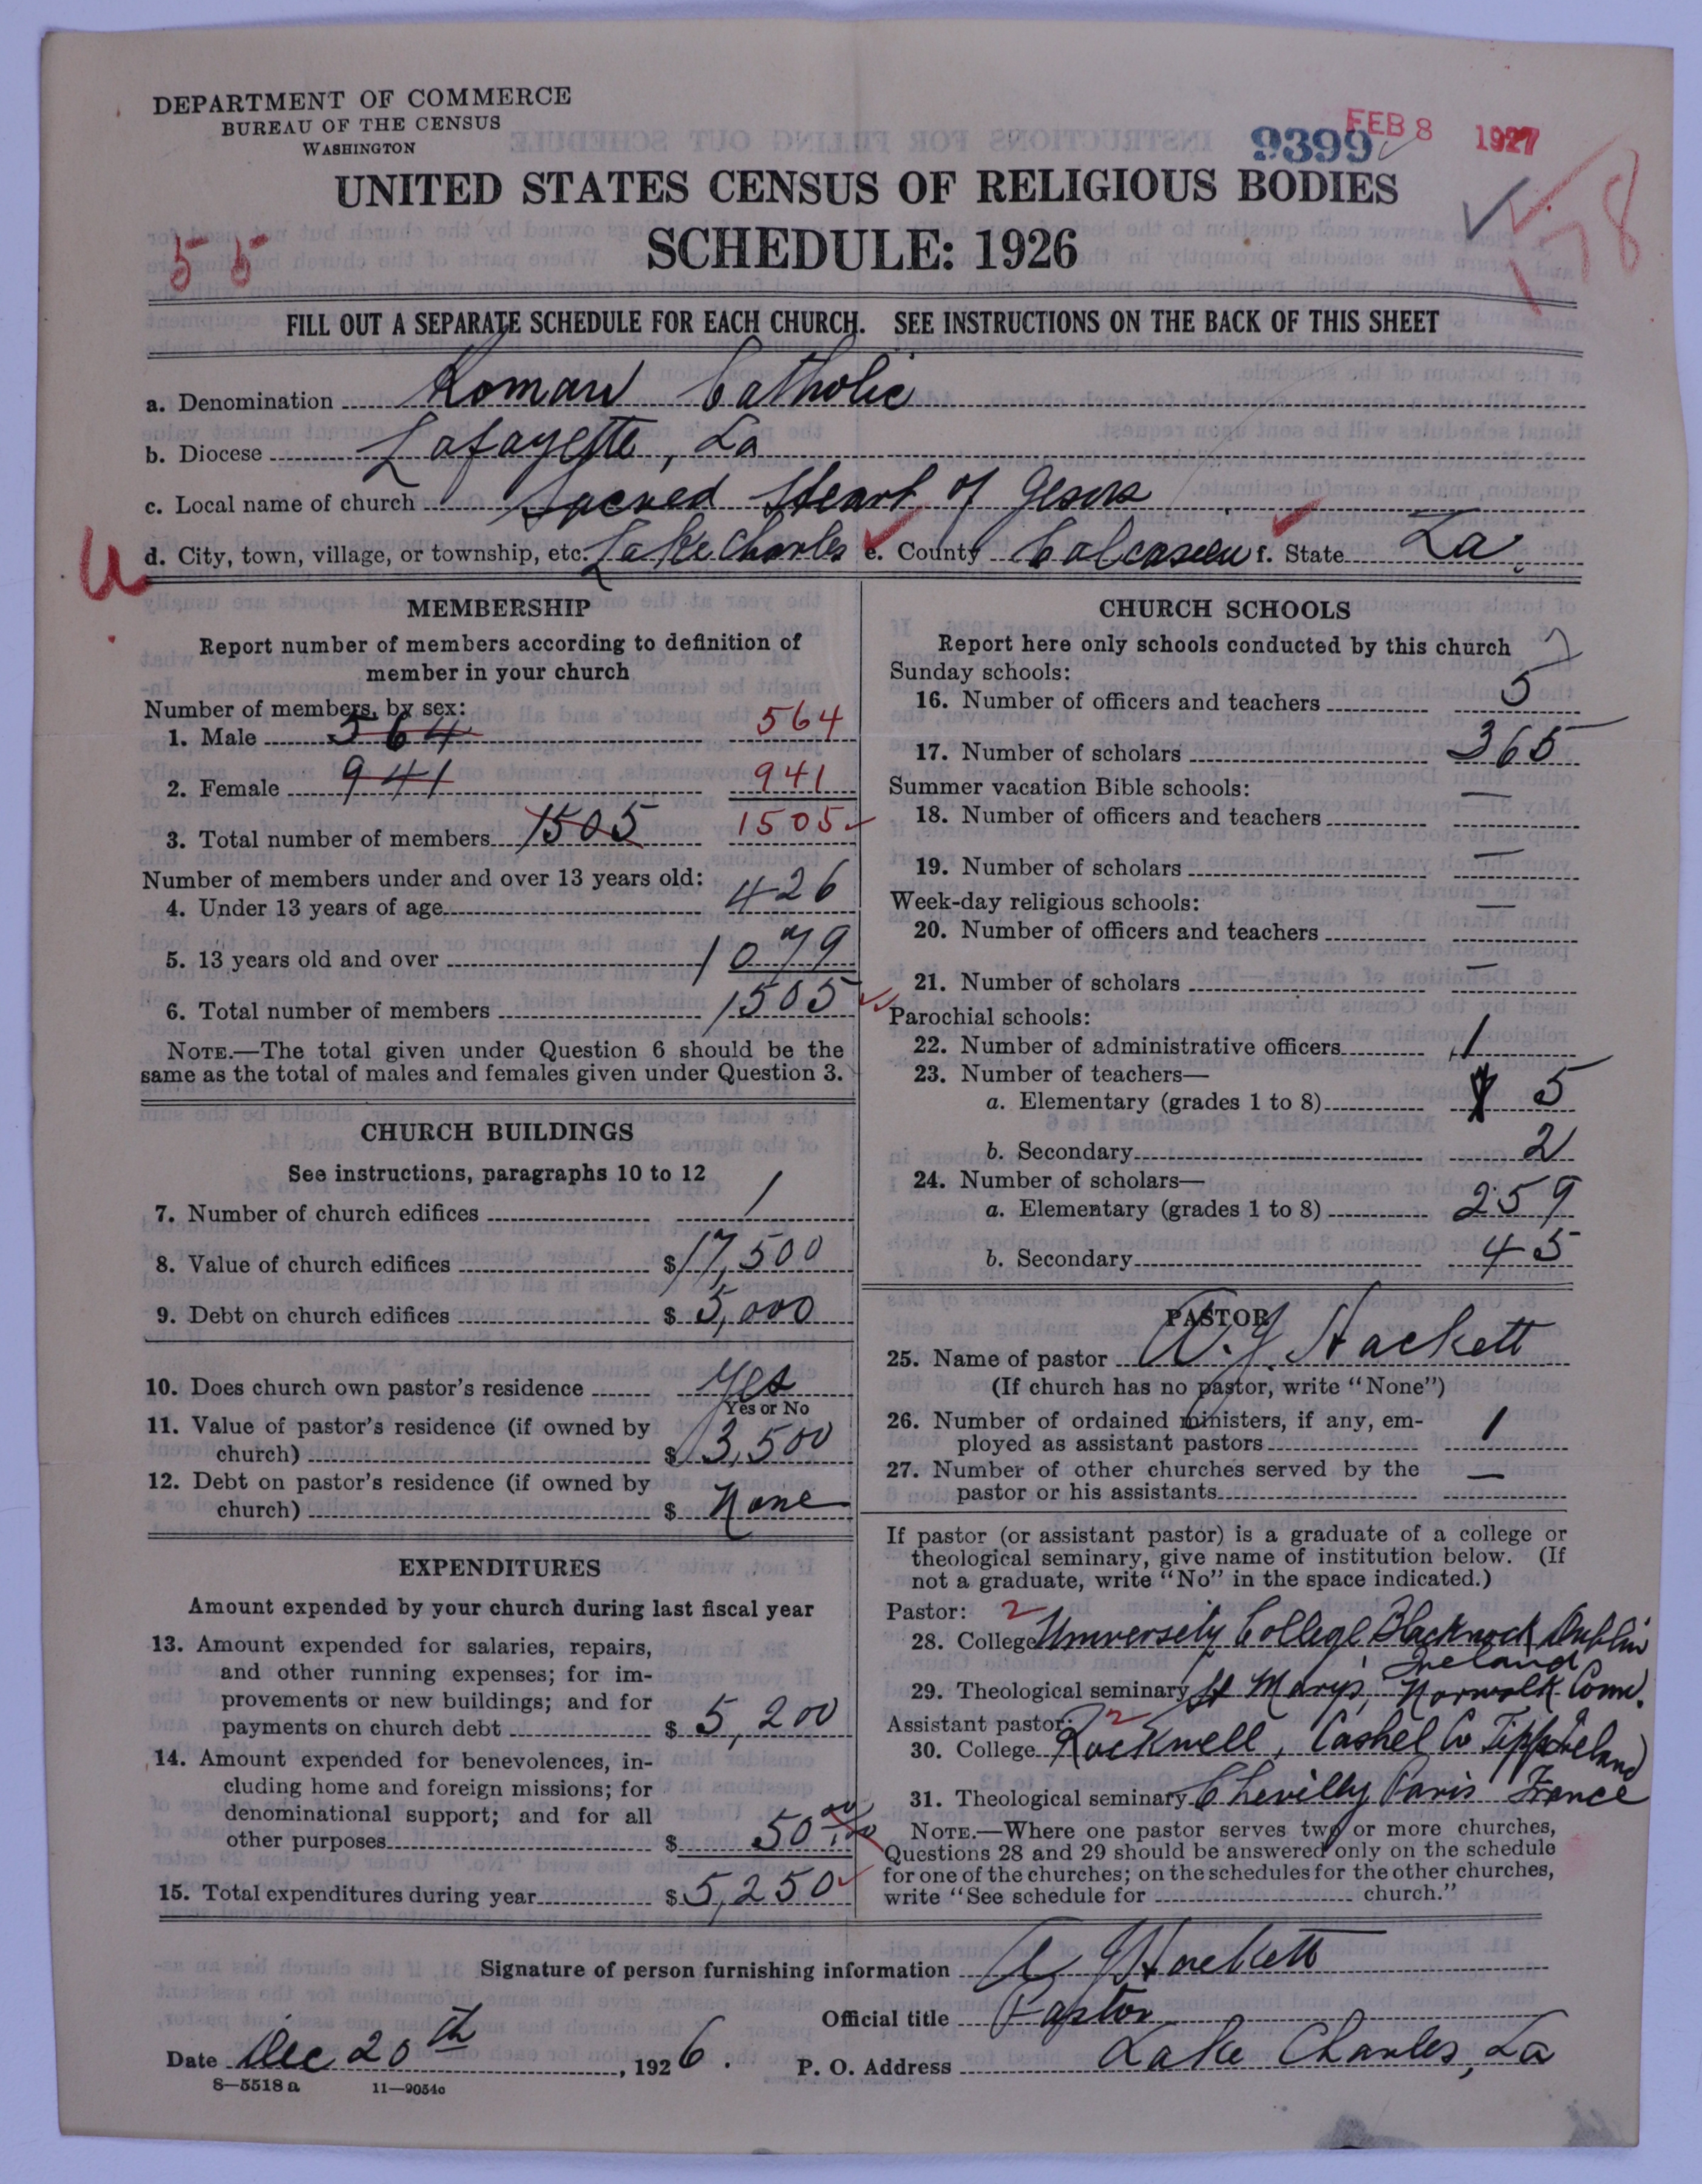 DEPARTMENT OF COMMERCE
BUREAU OF THE CENSUS
WASHINGTON
9399
FEB 8 1927
UNITED STATES CENSUS OF RELIGIOUS BODIES
55
SCHEDULE: 1926
FILL OUT A SEPARATE SCHEDULE FOR EACH CHURCH. SEE INSTRUCTIONS ON THE BACK OF THIS SHEET
a. Denomination Roman Catholic
b. Diocese Lafayette, La
c. Local name of church Sacred Heart of Jesus
d. City, town, village, or township, etc. Lake Charles e. County Calcasieu f. State La.
MEMBERSHIP
Report number of members according to definition of
member in your church
Number of members, by sex:
1. Male 564 564
2. Female 941 941
3. Total number of members 1505 1505
Number of members under and over 13 years old:
4. Under 13 years of age 426
5. 13 years old and over 1079
6. Total number of members 1505
NOTE.—The total given under Question 6 should be the
same as the total of males and females given under Question 3.
CHURCH BUILDINGS
See instructions, paragraphs 10 to 12
7. Number of church edifices 1
8. Value of church edifices $17,500
9. Debt on church edifices $ 5,000
10. Does church own pastor's residence Yes
Yes or No
11. Value of pastor's residence (if owned by
church) $ 3,500
12. Debt on pastor's residence (if owned by
church) $ None
EXPENDITURES
Amount expended by your church during last fiscal year
13. Amount expended for salaries, repairs,
and other running expenses; for im-
provements or new buildings; and for
payments on church debt $ 5,200
14. Amount expended for benevolences, in-
cluding home and foreign missions; for
denominational support; and for all
other purposes $ 50.00
15. Total expenditures during year $ 5,250
CHURCH SCHOOLS
Report here only schools conducted by this church
Sunday schools:
16. Number of officers and teachers 5
17. Number of scholars 365
Summer vacation Bible schools: —
18. Number of officers and teachers
19. Number of scholars —
Week-day religious schools: —
20. Number of officers and teachers
21. Number of scholars —
Parochial schools:
22. Number of administrative officers 1
23. Number of teachers—
a. Elementary (grades 1 to 8) 5
b. Secondary 2
24. Number of scholars—
a. Elementary (grades 1 to 8) 259
b. Secondary 45
PASTOR
25. Name of pastor A. J. Hackett
(If church has no pastor, write "None")
26. Number of ordained ministers, if any, em-
ployed as assistant pastors 1
27. Number of other churches served by the —
pastor or his assistants
If pastor (or assistant pastor) is a graduate of a college or
theological seminary, give name of institution below. (If
not a graduate, write "No" in the space indicated.)
Pastor: 2
28. College University College Blackrock Dublin
Ireland
29. Theological seminary St Mary's, Norwalk Conn.
Assistant pastor: 2
30. College Rockwell, Cashel Co Tipp Ireland
31. Theological seminary Chevilly Paris France
NOTE.—Where one pastor serves two or more churches,
Questions 28 and 29 should be answered only on the schedule
for one of the churches; on the schedules for the other churches,
write "See schedule for church."
Signature of person furnishing information A J Hackett
Official title Pastor
Date Dec 20th, 1926. P. O. Address Lake Charles, La
8—5518 a 11—9054c